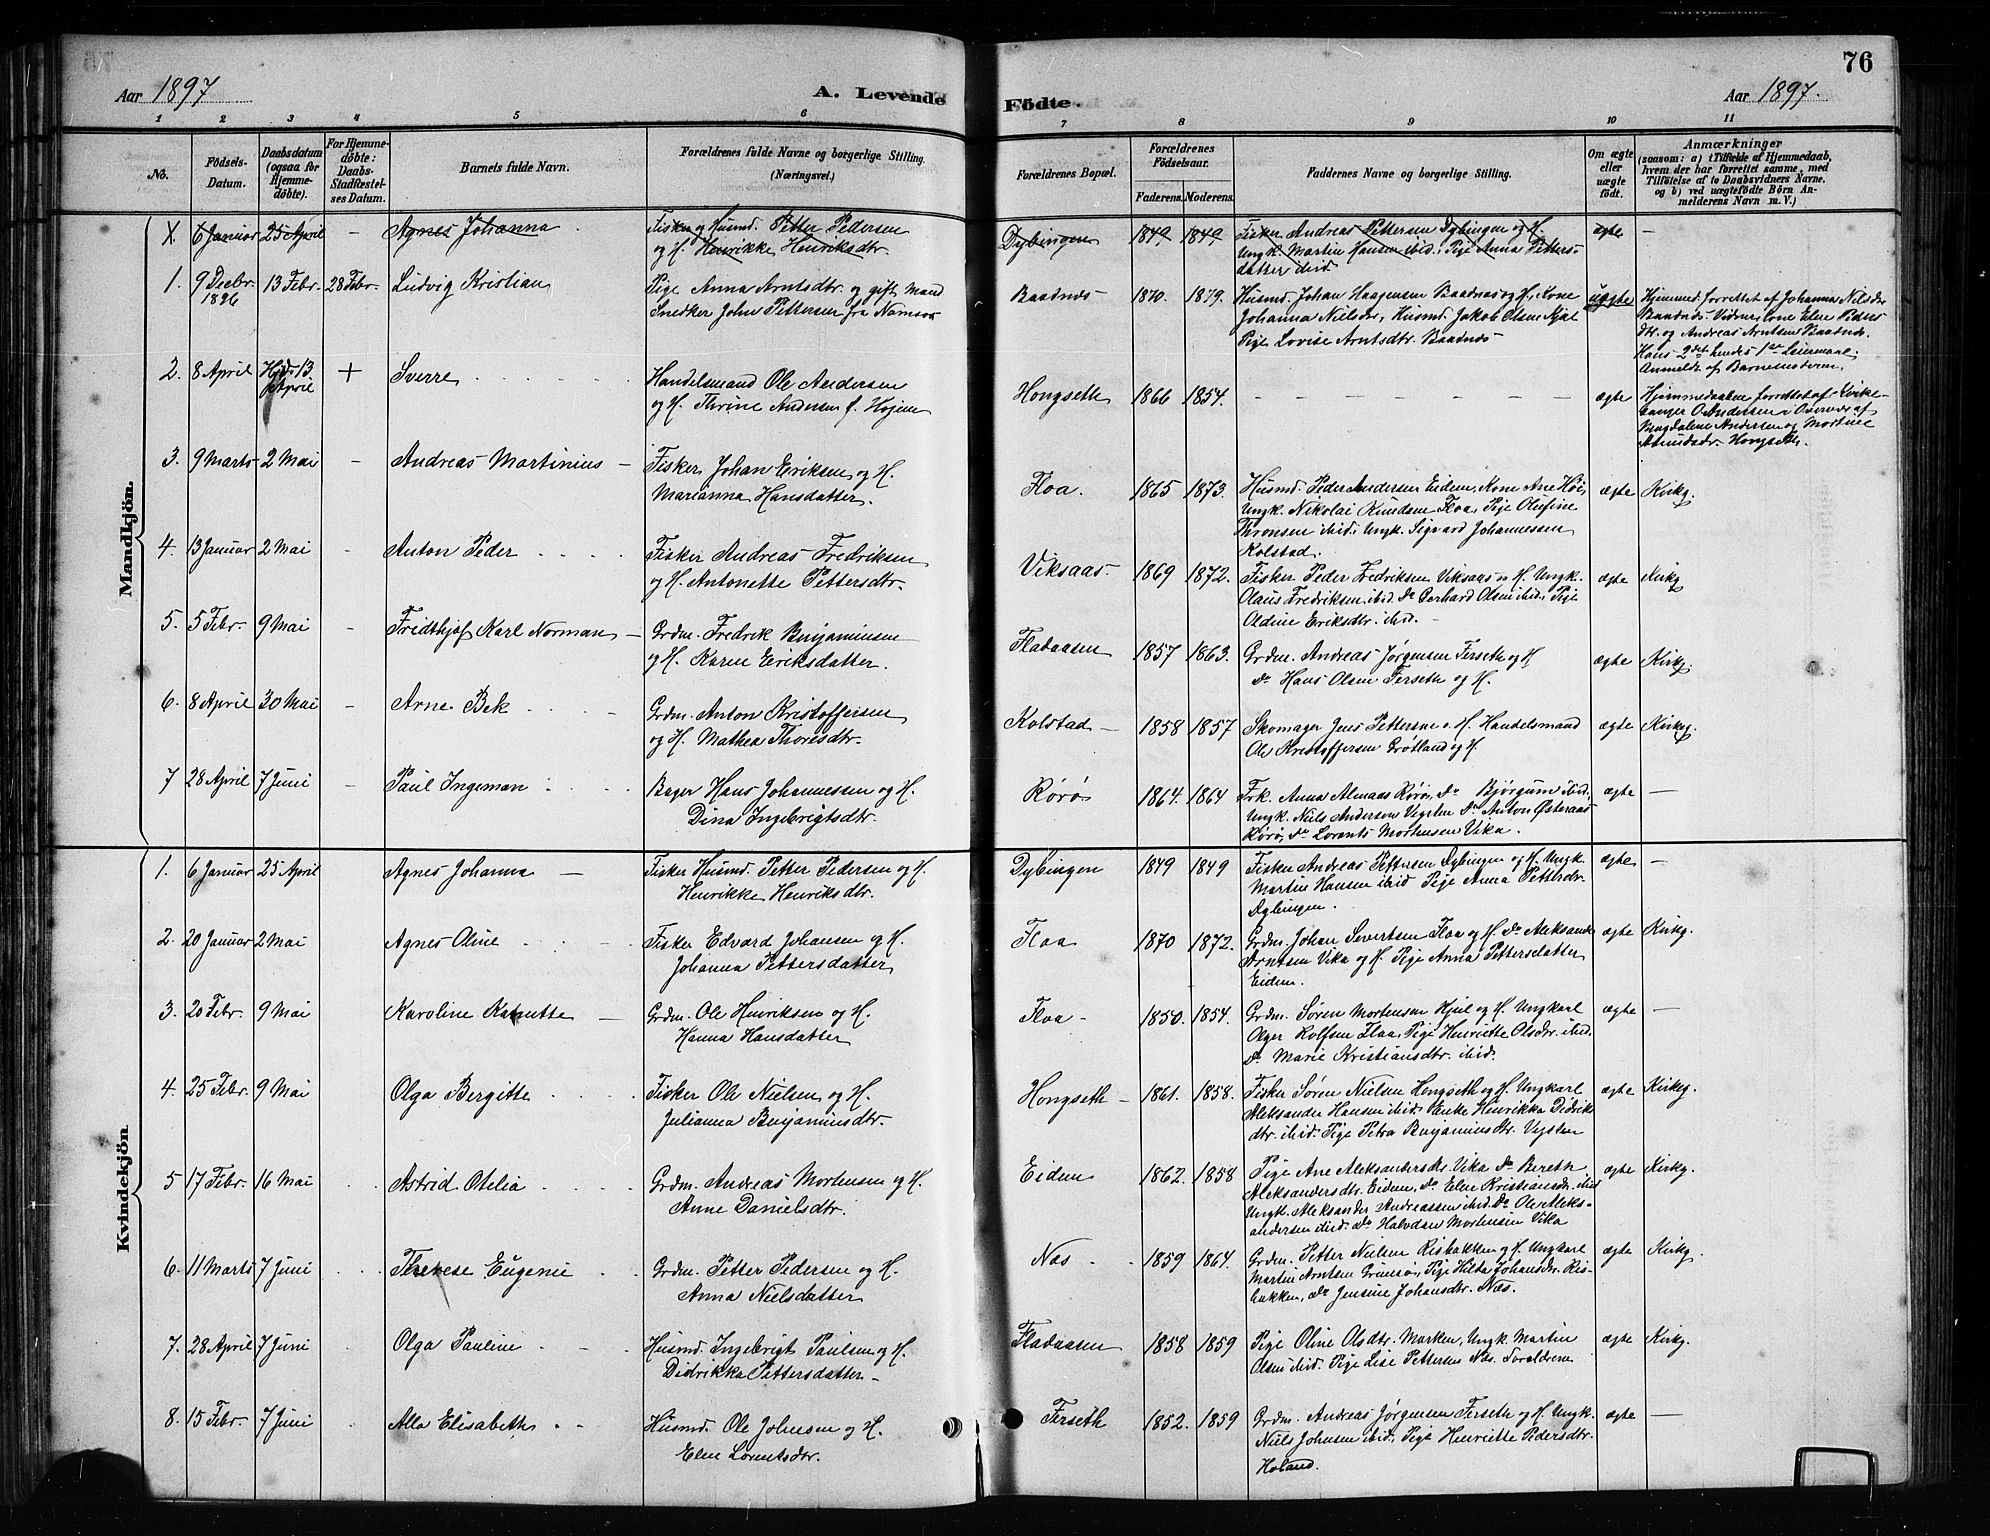 76
Aar 1897
A. Levende
Födte.
Aar 1897.
1 2 3 4 5 6 7 8 9 10 11
No.
Födsels-Datum.
Daabsdatum (ogsaa for Hjemme-döbte).
For Hjemme-döbte: Daabs-Stadfæstel-ses Datum.
Barnets fulde Navn.
Forældrenes fulde Navne og borgerlige Stilling.
(Næringsvei.)
Forældrenes Bopæl.
Forældrenes Födselsaar.
Faderens. Moderens.
Faddernes Navne og borgerlige Stilling.
Om ægte eller uægte födt.
Anmærkninger
(saasom: a) i Tilfælde af Hjemmedaab,
hvem der har forrettet samme, med
Tilföielse af to Daabsvidners Navne,
og b) ved uægtefödte Börn An-
melderens Navn m. V.)
Mandkjön.
X. 6 Januar 25 April - Agnes Johanna Fisker og Husmd. Petter Pedersen
og H. Henrikke Henriksdtr.
Dybingen 1849 1849 Fisker Andreas Pettersen Dybingen og H.
Ungk. Martin Hansen ibid. Pige Anna Petters-
datter ibid.
ægte -
1. 9 Decbr. 1896 13 Febr. 28 Febr. Ludvig Kristian Pige Anna Arntsdtr. og gift Mand
Snedker John Pettersen fra Namsos
Baadnes 1870. 1879. Husmd. Johan Haagensen Baadnes og H., Kone
Johanna Nielsdr., Husmd. Jakob Olsen
Pige Lovise Arntsdtr. Baadnes
uægte Hjemmed. forrettet af Johanna Nilsdr.
og Andreas Arntsen Baadnes.
Hans 2det hendes 1ste Leiermaal.
Anmeldt af Barnemoderen.
2. 8 April Hjd. 13 April + Sverre Handelsmand Ole Andersen
og H. Thrine Andersen f. Hojem
Hongseth 1866 1854. - - - - - - - ægte Hjemmedaaben forrettet af
sanger O. Andersen i Overvær af
Magdalene Andersen og Martine
Hongseth.
3. 9 Marts 2 Mai - Andreas Martinius - Fisker Johan Eriksen og H.
Marianna Hansdatter.
Floa. 1865 1873. Husmd. Peder Andersen Eidem, Kone Ane Høi,
Ungk. Nikolai Knudsen Floa, Pige Olufine
Thronsen ibid. Ungk. Sigvard Johannessen
Kolstad.
ægte Kirkg.
4. 13 Januar 2 Mai - Anton Peder Fisker Andreas Fredriksen
og H. Antonette Pettersdtr.
Viksaas. 1869 1872. Fisker Peder Fredriksen Viksaas og H. Ungk.
Olaus Fredriksen ibid. Do Gerhard Olsen ibid. Pige
Oldine Eriksdtr. ibid.
ægte Kirkg
5. 5 Febr. 9 Mai - Fridthjof Karl Norman - Grdm. Fredrik Benjaminsen
og H. Karen Eriksdatter.
Fladaasen 1857 1863. Grdm. Andreas Jørgensen Ferseth og H
Do Hans Olsen Ferseth og H.
ægte Kirkg.
6. 8 April 30 Mai - Arne Bek Grdm. Anton Kristoffersen
og H. Mathea Thoresdtr.
Kolstad - 1858 1857 Skomager Jens Pettersen o. H. Handelsmand
Ole Kristoffersen Grøtland og H.
ægte Kirkg.
7 28 April 7 Juni - Paul Ingeman Bager Hans Johannessen og H.
Dina Ingebrigtsdtr.
Rørø 1864. 1864 Frk. Anna Almaas Rørø, Do Bjørgum ibid.
Ungk. Niels Andersen Vigsten Do Anton Østeraas
Rørø, Do Lorents Mortensen Vika.
ægte -
Kvindekjön.
1. 6 Januar 25 April Agnes Johanna - Fisker Husmd. Petter Pedersen og H.
Henrikke Henriksdtr.
Dybingen 1849 1849 Fisker Andreas Pettersen Dybingen og H. Ungk.
Martin Hansen ibid Pige Anna Pettersdr.
Dybingen.
ægte -
2. 20 Januar 2 Mai Agnes Oline Fisker Edvard Johansen og H.
Johanna Pettersdatter
Floa 1870 1872. Grdm. Johan Severtsen Floa og H. Do Aleksander
Arntsen Vika og H. Pige Anna Pettersdatter
Eidem.
ægte Kirkg.
3. 20 Febr. 9 Mai Karoline Kanutte - Grdm. Ole Henriksen og H.
Hanna Hansdatter
Floa - 1850. 1854. Grdm. Søren Mortensen Hjul og H. Ungkarl
Olger Rolfsen Floa, Pige Henriette Olsdtr. ibid.
Do Marie Kristiansdtr. ibid.
ægte -
4. 25 Febr. 9 Mai Olga Bergitte Fisker Ole Nielsen og H.
Julianna Benjaminsdtr.
Hongseth - 1861. 1858. Fisker Søren Nielsen Hongseth og H. Ungkarl
Aleksander Hansen ibid. Enke Henrikka Didrik
dtr. ibid. Pige Petra Benjaminsdtr. Vigsten
ægte Kirkg.
5 17 Febr. 16 Mai Astrid Otelia Grdm. Andreas Mortensen og H.
Anne Danielsdtr.
Eidem 1862. 1858 Pige Ane Aleksandersdr. Vika Do Bereth
Aleksandersdtr. Eidem, Do Elen Kristiansdr. ibid
Ungk. Aleksander Andreassen ibid. Do Ole Aleks-
andersen ibid. Do Halvdan Mortensen Vika
ægte Kirkg.
6. 11 Marts 7 Juni Therese Eugenie Grdm. Petter Pedersen og H.
Anna Nielsdatter
Nas 1859 1864. Grdm. Petter Nielsen Risbakken og H. Ungkarl
Martin Arntsen Grimsø, Pige Hilda Johansdr. Ris-
bakken, Do Jensine Johansdtr. Næs.
ægte Kirkg.
7. 28 April 7 Juni Olga Pauline Husmd. Ingebrigt Paulsen og H.
Didrikka Pettersdatter -
Fladaasen 1858 1859 Pige Oline Olsdtr. Marken, Ungk. Martin
Olsen ibid. Pige Lise Pettersen Næs. Forældrene
ægte Kirkg.
8. 15 Febr. 7 Juni Alla Elisabeth Husmd. Ole Johnsen og H.
Elen Lorentsdtr.
Ferseth 1852. 1859 Grdm. Andreas Jørgensen Ferseth og H. Ungk.
Niels Johnsen ibid., Pige Henriette Pedersdtr.
Holand.
ægte -